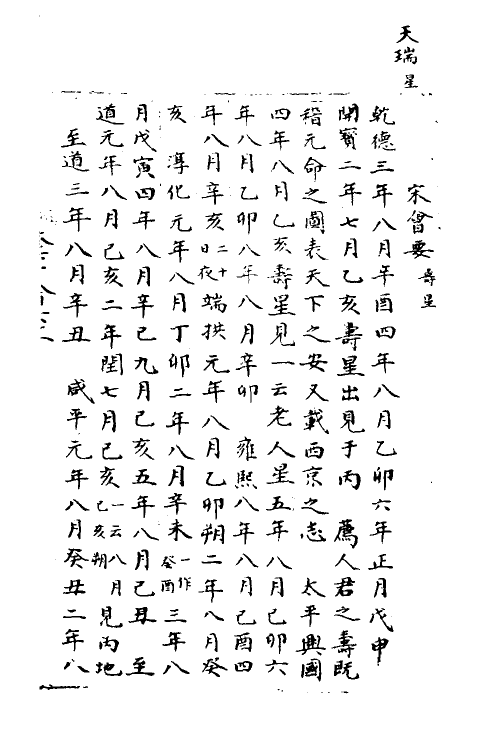 天瑞星
宋會要壽星
乾德三年八月辛酉四年八月乙卯六年正月戊申
開寶二年七月乙亥壽星出見于丙　薦人君之壽既
稽元命之圖表天下之安又載西京之志　太平興國
四年八月乙亥壽星見一云老人星五年八月己卯六
年八月乙卯八年八月辛卯　雍熙八年八月己酉四
年八月辛亥二十日夜端拱元年八月乙卯朔二年八月癸
亥　淳化元年八月丁卯二年八月辛未一作癸酉三年八
月戊寅四年八月辛巳九月己亥五年八月己丑　至
道元年八月己亥二年閏七月己亥一云八月己亥朔見丙地
至道三年八月辛丑　咸平元年八月癸丑二年八